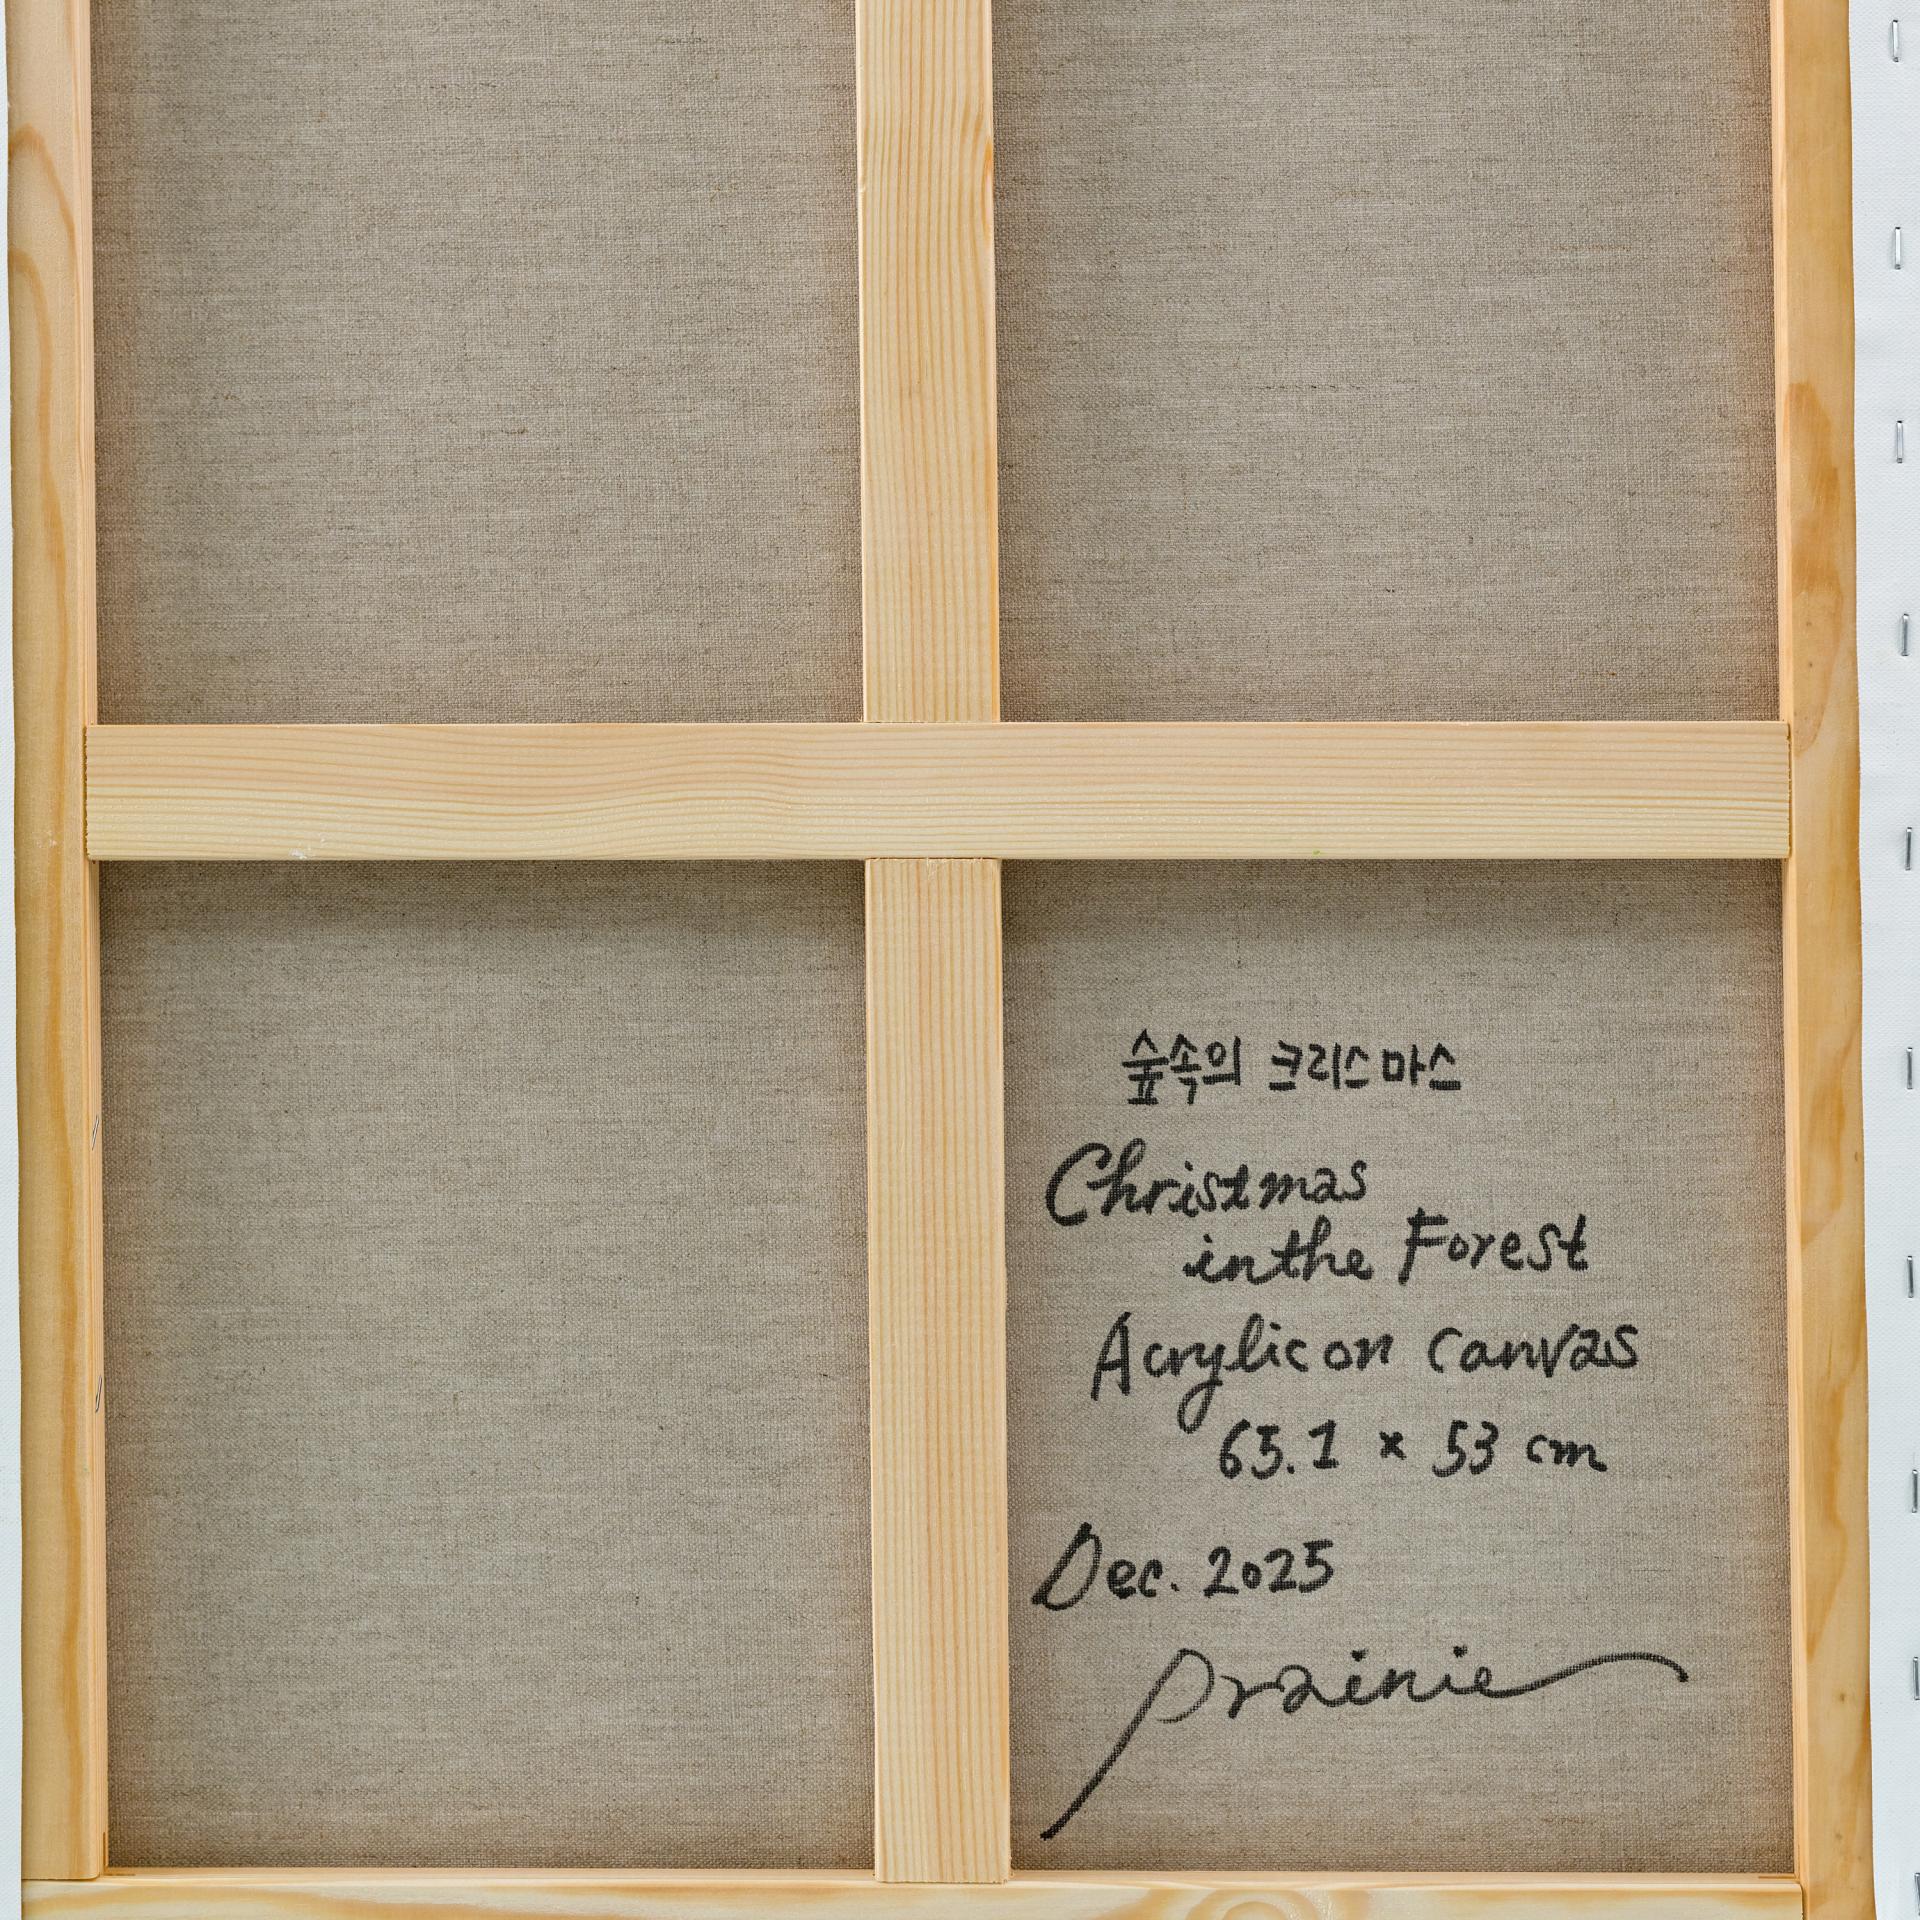 숲속의 크리스마스
Christmas
in the Forest
Acrylic on canvas
65.1 × 53 cm
Dec. 2025
prairie